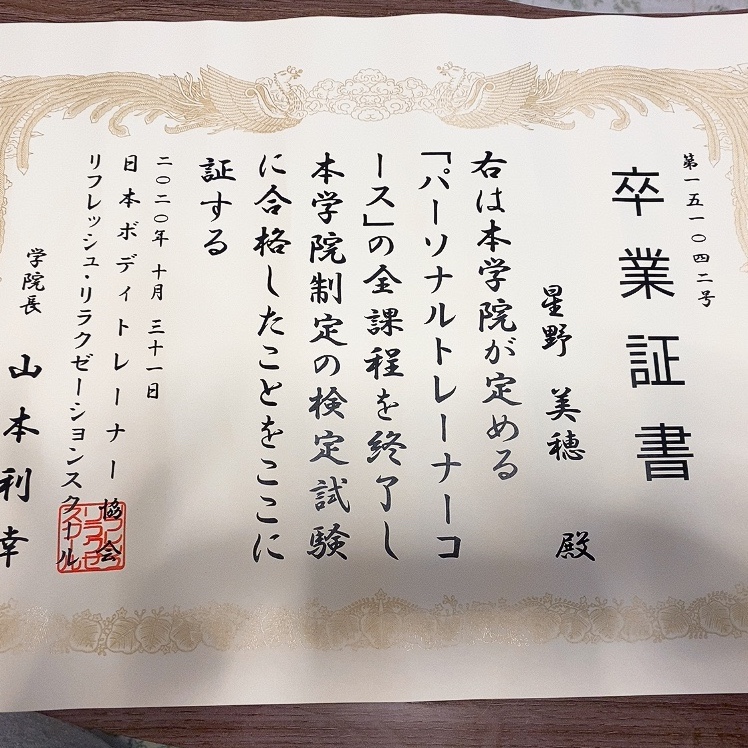 第一五一〇四二号
卒業証書
星野 美穂 殿
右は本学院が定める
「パーソナルトレーナーコ
ース」の全課程を終了し
本学院制定の検定試験
に合格したことをここに
証する
二〇二〇年 十月 三十一日
日本ボディトレーナー協会
リフレッシュ・リラクゼーションスクール
学院長 山本利幸